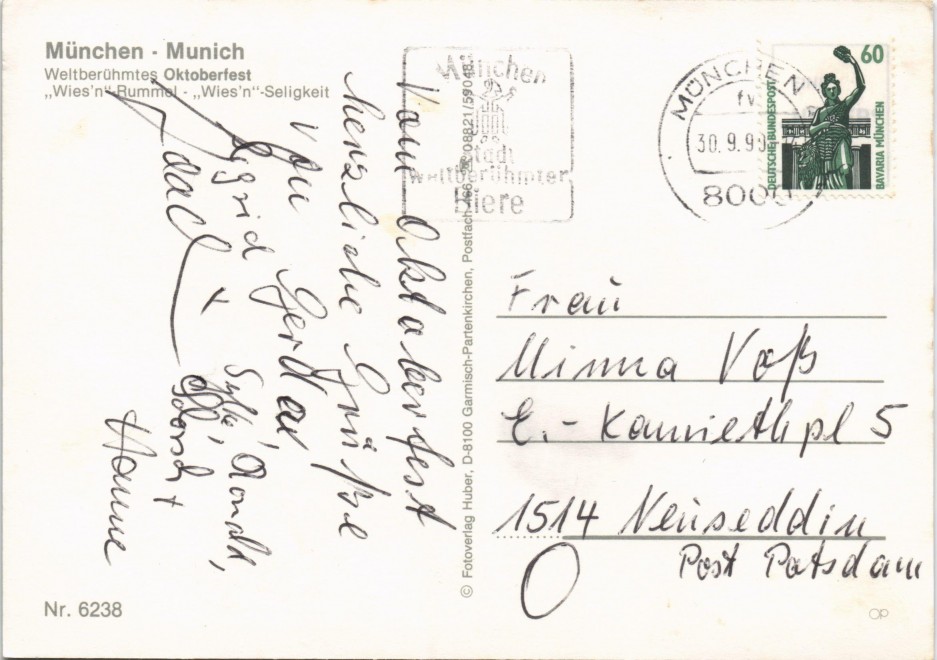 München · Munich
Weltberühmtes Oktoberfest
„Wies'n“-Rummel - „Wies'n“-Seligkeit
Vom Oktoberfest
herzliche Grüße
von Gerda
Sigrid
Sylke, Ronald,
Horst +
Hanne
München
Stadt
weltberühmter
Biere
MÜNCHEN
fv
30.9.90
8000
60
DEUTSCHE BUNDESPOST
BAVARIA MÜNCHEN
© Fotoverlag Huber, D-8100 Garmisch-Partenkirchen, Postfach 466, 08821/59048
Frau
Minna Voß
E.-Kamiethpl 5
1514 Neuseddin
Post Potsdam
Nr. 6238